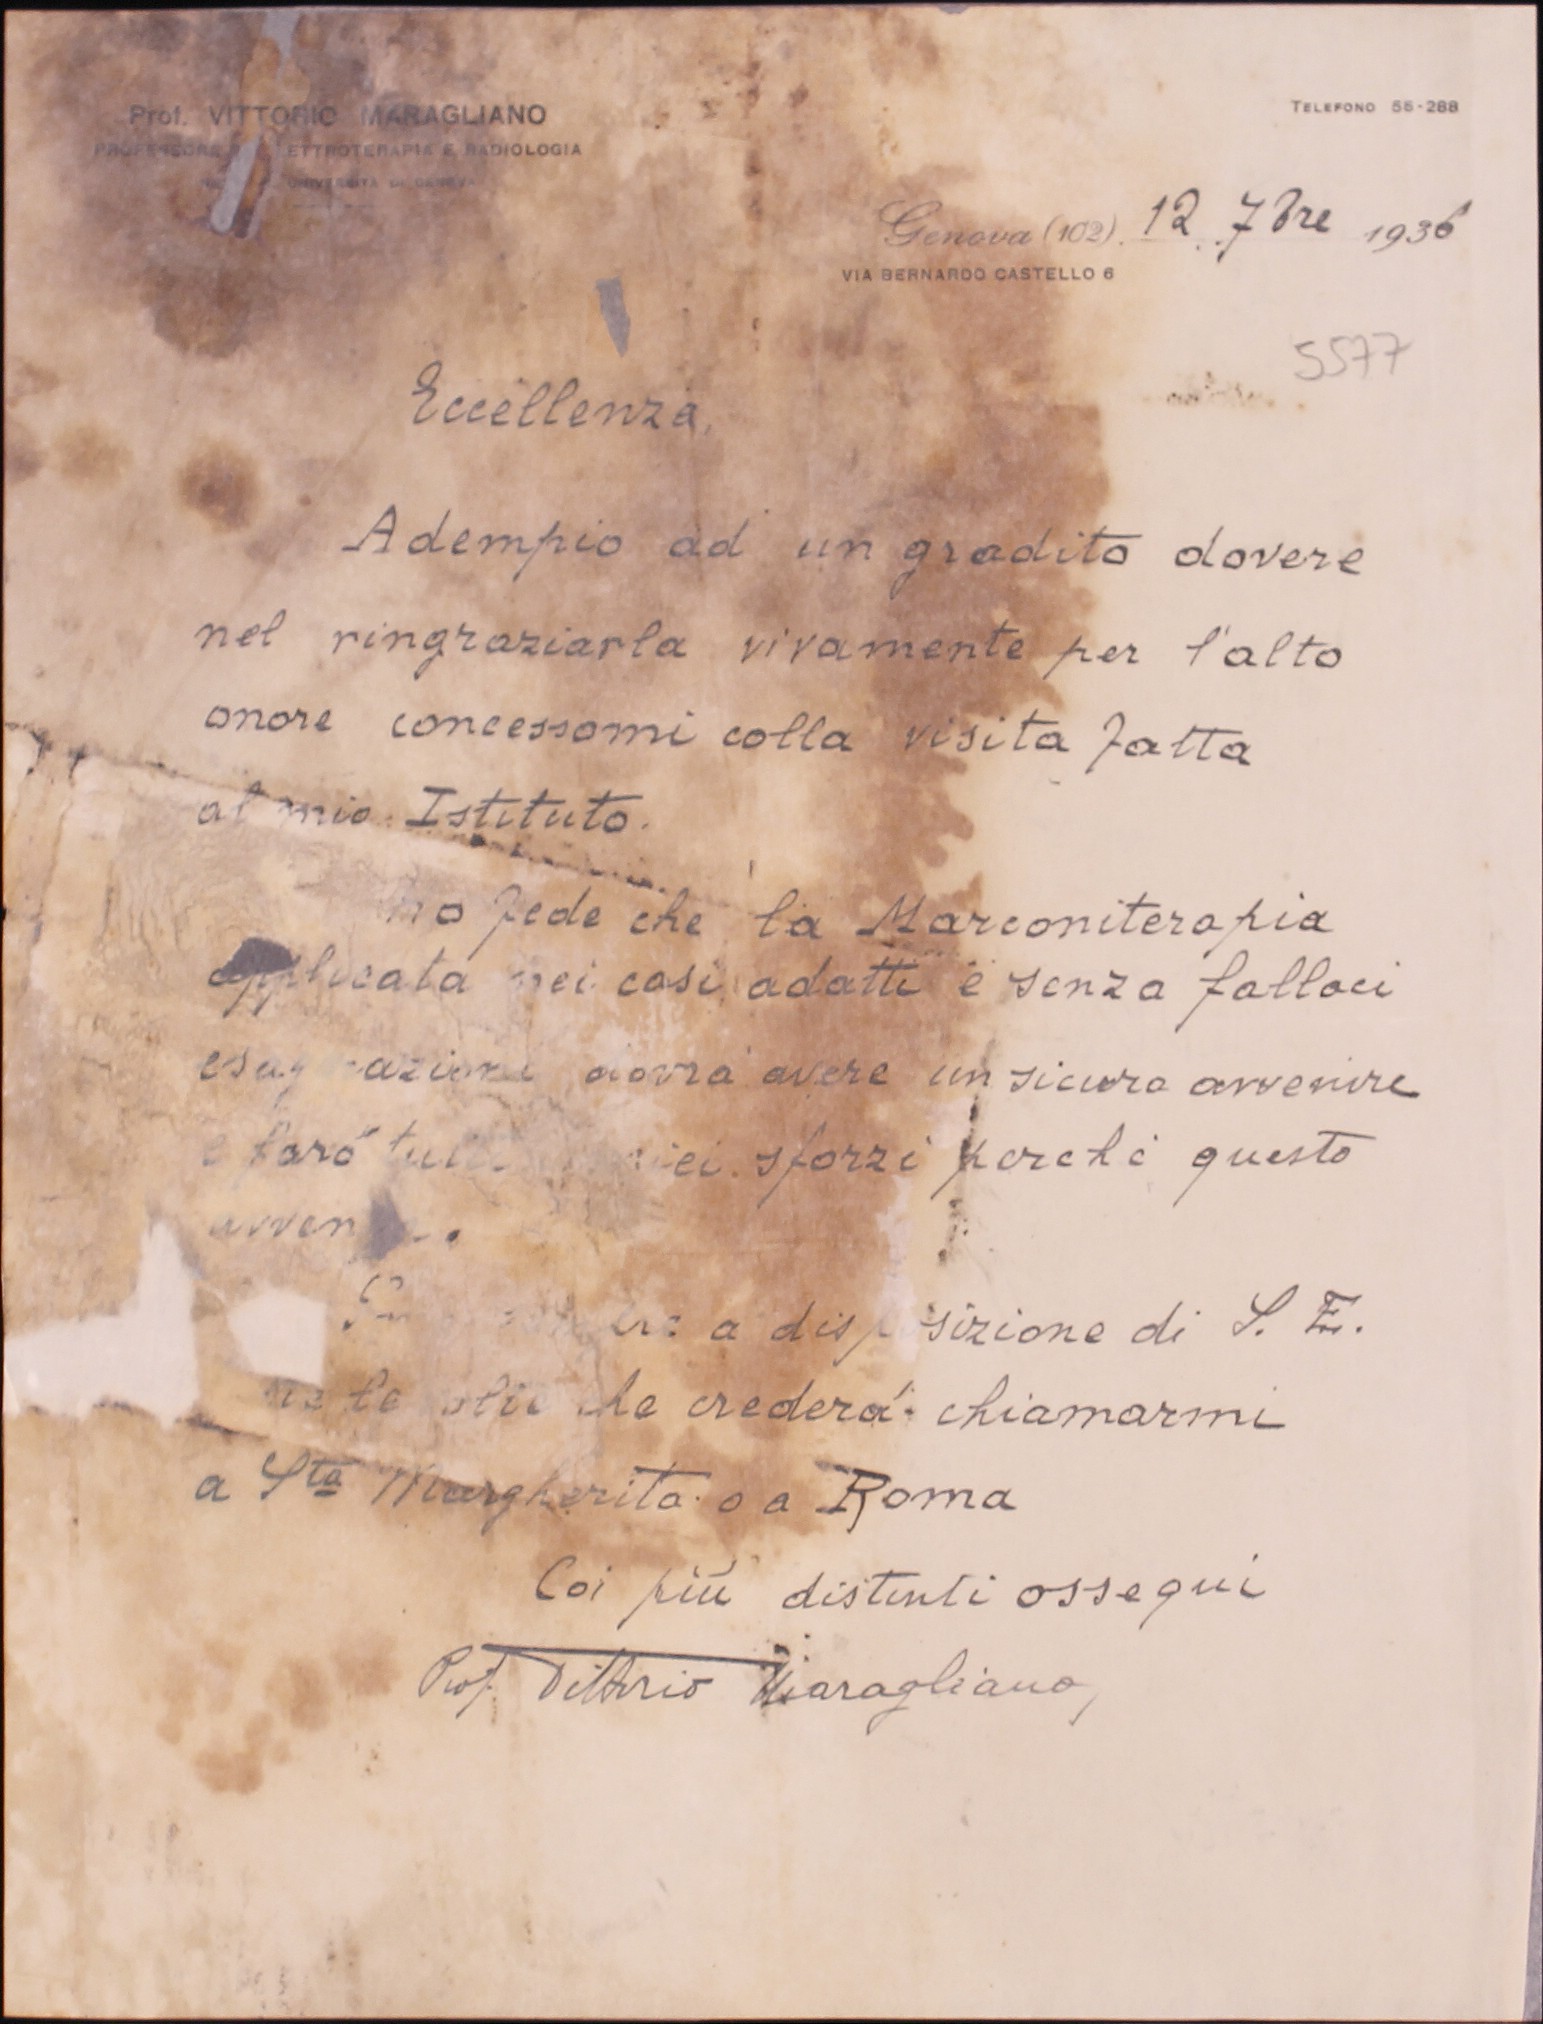 Prof. VITTORIO MARAGLIANO
PROFESSORE ETTROTERAPIA E RADIOLOGIA
UNIVERSITÀ DI GENOVA
TELEFONO 55-288
Genova (102). 12 7bre 1936
VIA BERNARDO CASTELLO 6
5577
Eccellenza,
Adempio ad un gradito dovere
nel ringraziarla vivamente per l'alto
onore concessomi colla visita fatta
al mio Istituto.
Ho fede che la Marconiterapia
applicata nei casi adatti e senza fallaci
dovrà avere un sicuro avvenire
e farò sforzi perchè questo
a disposizione di S. E.
che crederà chiamarmi
a Sta Margherita o a Roma
Coi più distinti ossequi
Prof. Vittorio Maragliano